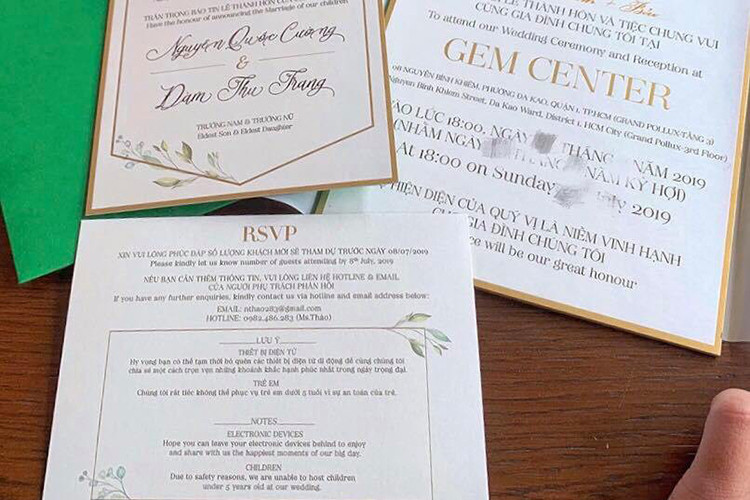 TRÂN TRỌNG BÁO TIN LỄ THÀNH HÔN CỦA
Have the honour of announcing the Marriage of our children
Nguyễn Quốc Cường
&
Đàm Thu Trang
TRƯỞNG NAM & TRƯỞNG NỮ
Eldest Son & Eldest Daughter
LỄ THÀNH HÔN VÀ TIỆC CHUNG VUI
CÙNG GIA ĐÌNH CHÚNG TÔI TẠI
To attend our Wedding Ceremony and Reception at
GEM CENTER
08 NGUYỄN BỈNH KHIÊM, PHƯỜNG ĐA KAO, QUẬN 1, TP.HCM (GRAND POLLUX-TẦNG 3)
Nguyen Binh Khiem Street, Da Kao Ward, District 1, HCM City (Grand Pollux-3rd Floor)
VÀO LÚC 18:00, NGÀY THÁNG NĂM 2019
(NHẰM NGÀY THÁNG NĂM KỶ HỢI)
At 18:00 on Sunday July 2019
HIỆN DIỆN CỦA QUÝ VỊ LÀ NIỀM VINH HẠNH
CHO GIA ĐÌNH CHÚNG TÔI
will be our great honour
RSVP
XIN VUI LÒNG PHÚC ĐÁP SỐ LƯỢNG KHÁCH MỜI SẼ THAM DỰ TRƯỚC NGÀY 08/07/2019
Please kindly let us know number of guests attending by 8th July, 2019
NẾU BẠN CẦN THÊM THÔNG TIN, VUI LÒNG LIÊN HỆ HOTLINE & EMAIL
CỦA NGƯỜI PHỤ TRÁCH PHẢN HỒI
If you have any further enquiries, kindly contact us via hotline and email address below:
EMAIL: nthao283@gmail.com
HOTLINE: 0982.486.283 (Ms.Thảo)
LƯU Ý
THIẾT BỊ ĐIỆN TỬ
Hy vọng bạn có thể tạm thời bỏ quên các thiết bị điện tử di động để cùng chúng tôi
chia sẻ một cách trọn vẹn những khoảnh khắc hạnh phúc nhất trong ngày trọng đại.
TRẺ EM
Chúng tôi rất tiếc không thể phục vụ trẻ em dưới 5 tuổi vì sự an toàn của trẻ.
NOTES
ELECTRONIC DEVICES
Hope you can leave your electronic devices behind to enjoy
and share with us the happiest moments of our big day.
CHILDREN
Due to safety reasons, we are unable to host children
under 5 years old at our wedding.